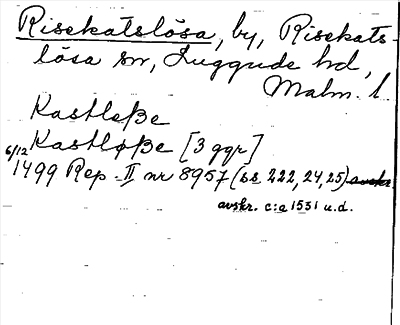 Risekatslösa, by, Risekats-
lösa sn, Luggude hd,
Malm. l.
Kastløße
Kastløße [3 ggr]
6/12 1499 Rep. II nr 8957 (ss 222, 24, 25) avskr.
avskr. c:a 1531 u.d.